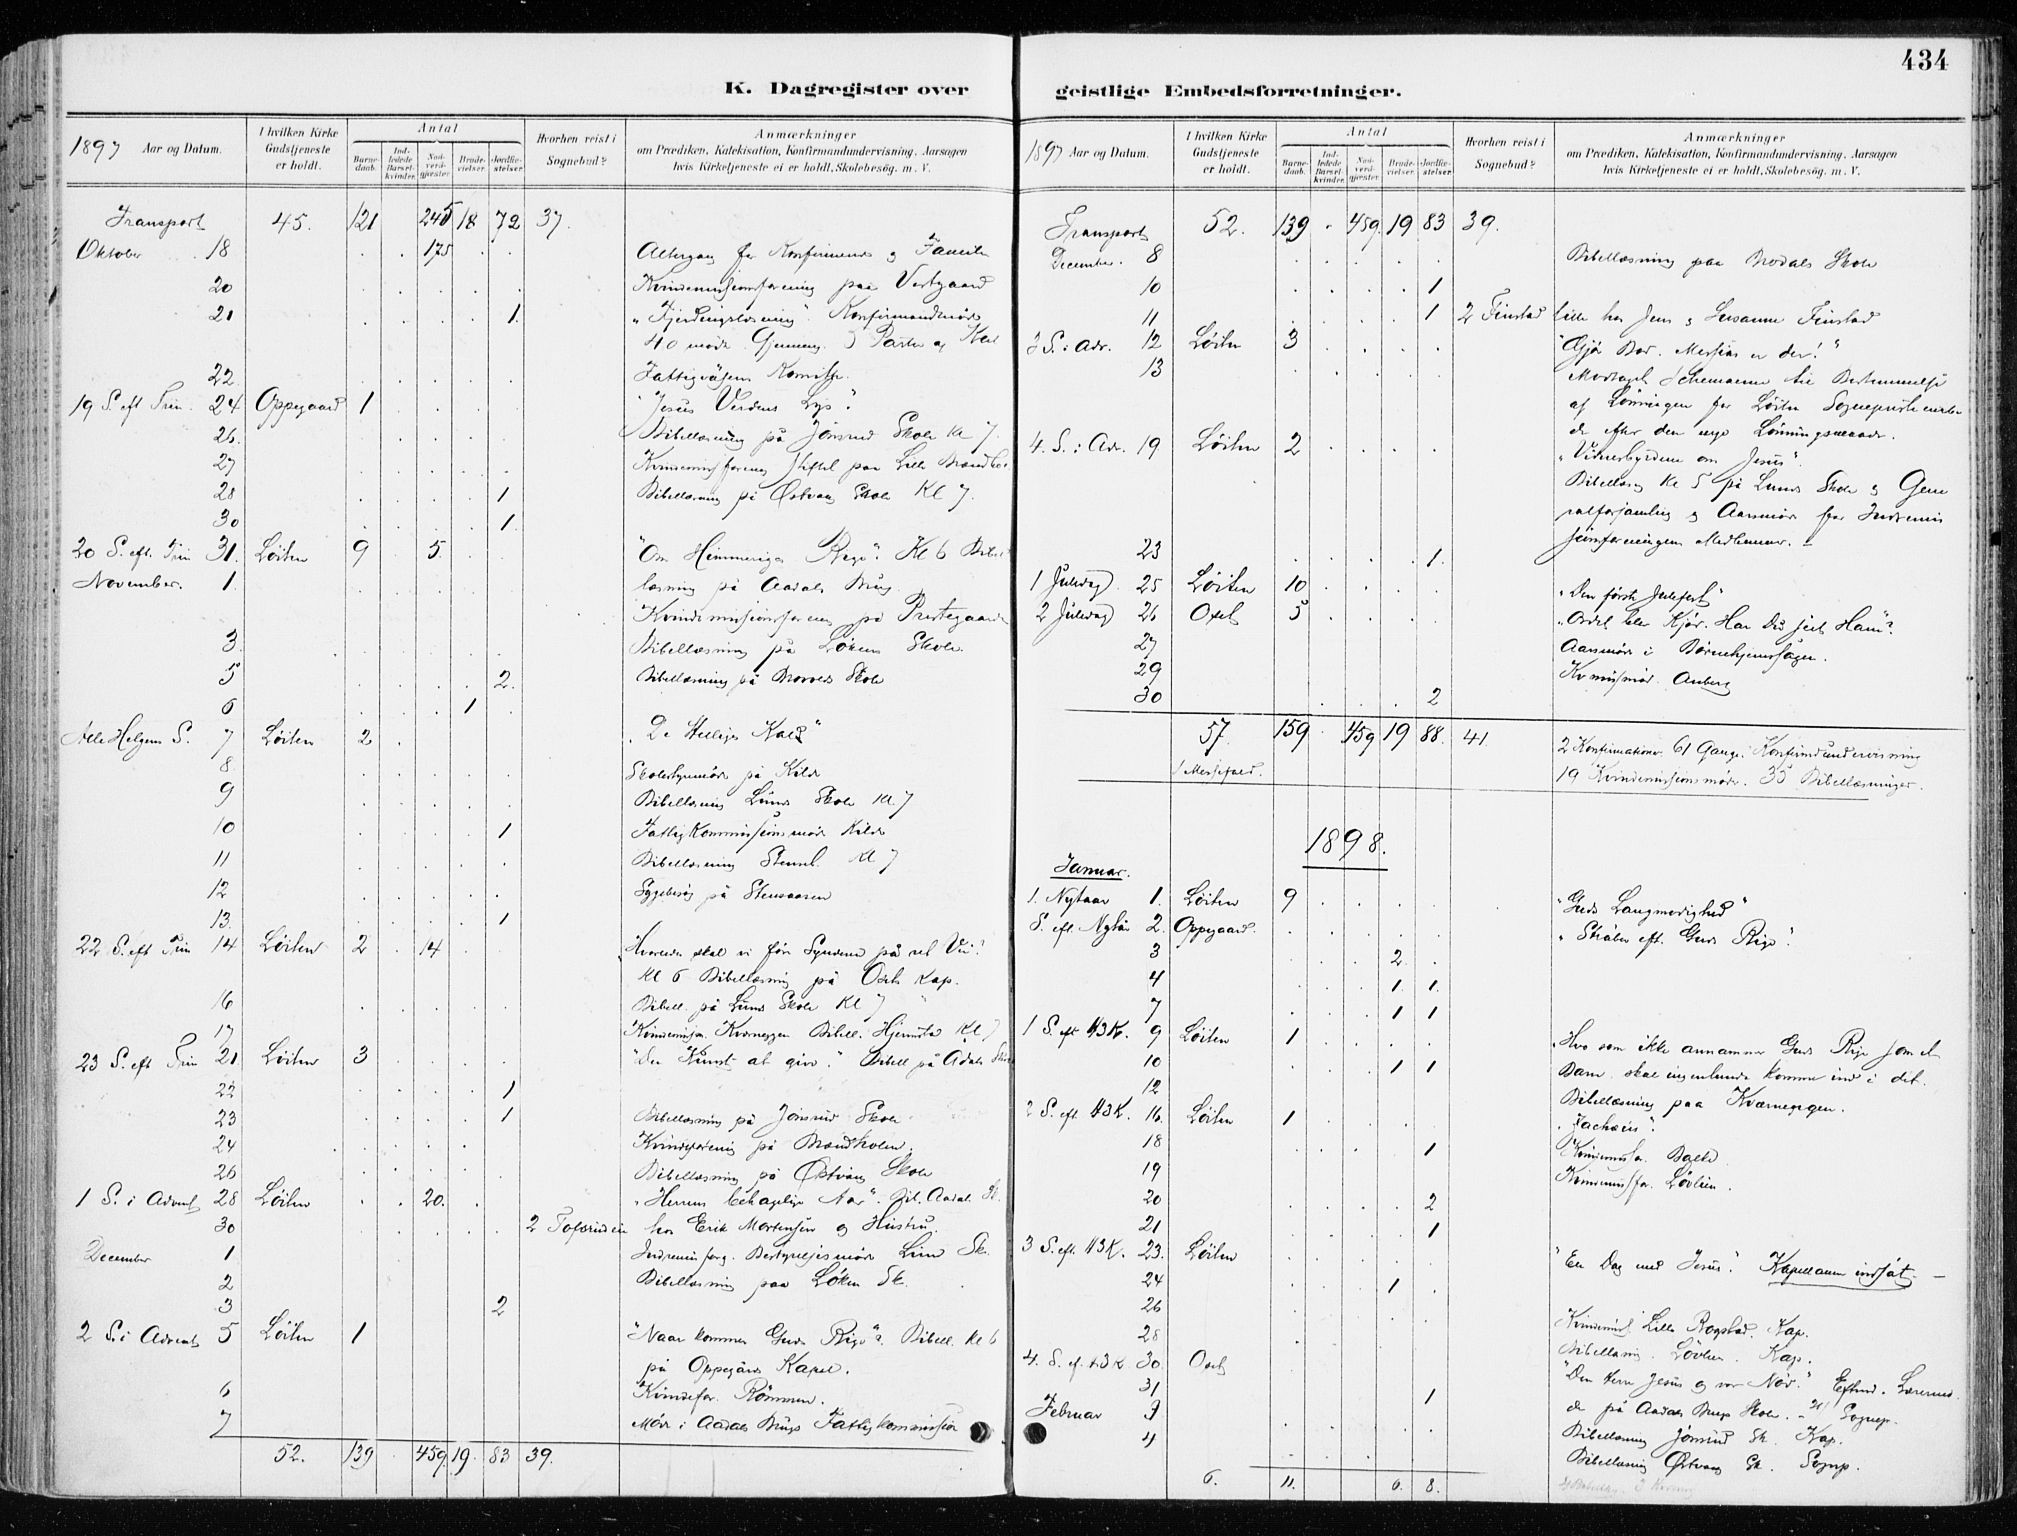 434
K. Dagregister over
1897 Aar og Datum.
I hvilken Kirke Gudstjeneste er holdt.
Antal
Barnedaab. Indledede Barselkvinder. Nadverdgjæster. Brudevielser. Jordfæstelser.
Hvorhen reist i Sognebud?
Anmærkninger
om Prædiken, Katekisation, Konfirmandundervisning. Aarsagen
hvis Kirketjeneste ei er holdt. Skolebesög. m. V.
Transport 45. 121 245 18 72 37.
Oktober 18 . . 175 . . Altergang for Konfirmerede og Familie
20 . . . . . Kvindemissionsforening paa Vestgaard
21 . . . . 1. "Fjerdingslæsning" Konfirmandmøde
40 mødt.
22 . . . . . Fattigvæsens Komiss.
19 S. eft Trin. 24 Oppegaard 1 . . . . "Jesus Verdens Lys".
26. . . . . . Bibellæsning på Jønsrud Skole Kl 7.
27 . . . . .
28 . . . . 1 Bibellæsning på Østvang Skole Kl 7.
30 . . . . 1.
20 S. eft. Trin 31. Løiten 9 . 5. . . "Om Himmeriges Rige". Kl 6 Bibel
November. 1. læsning på Aadals Brug.
Kvindemissionsforening på Prestegaarden
3. . . . . . Bibellæsning på Løkens Skole.
5 . . . . 2. Bibellæsning på Skole
6 . . . 1 .
Alle Helgens S. 7 Løiten 2 . "De Helliges Kald"
8. . . . . . Skolestyremøde på Kilde
9 . . . . . Bibellæsning Lunds Skole Kl 7
10 . . . . 1 Fattigkommissionsmøde Kilde
11 . . . . . Bibellæsning Kl 7
12 . . . . . Sygebesøg på Stensaasen
13. . . . . 1
22 S. eft Trin 14 Løiten 2 . 14 . . Hvorledes skal vi føre Synderen på ret Vei?
Kl 6 Bibellæsning på Osets Kap.
16 . . . . . Bibell. på Lunds Skole Kl 7
17 Kvindemisf. Kværneggen Bibell. Hjemstad Kl 7
23 S. eft Trin 21 Løiten 3 . . . . "Den Kunst at give". Bibell på Aadals Skole
22 . . . . 1
23 . . . . 1 Bibellæsning på Jønsrud Skole
24 . . . . Kvindeforening på Brændholen.
26 . . . . Bibellæsning på Østvang Skole
1 S. i Advent 28 Løiten . . 20. . "Herrens behagelige Aar". Bib. Aadal. Sk.
30 2 hos Erik Mortensen og Hustru.
December 1 Bestyrelsesmøde Lund Sk.
2 Bibellæsning paa Løken Sk.
3 2
2 S. i Advent 5 Løiten 1 "Naar kommer Guds Rige"? Bibell. Kl 6
på Oppegårds Kapel.
6 Kvindefor. Rømmen.
7 Møde i Aadals Brugs Fattigkommission
52. 139 459 19. 83 39.
geistlige Embedsforretninger.
1897 Aar og Datum.
I hvilken Kirke Gudstjeneste er holdt.
Antal
Barnedaab. Indledede Barselkvinder. Nadverdgjæster. Brudevielser. Jordfæstelser.
Hvorhen reist i Sognebud?
Anmærkninger
om Prædiken, Katekisation, Konfirmandundervisning. Aarsagen
hvis Kirketjeneste ei er holdt. Skolebesög. m. V.
Transport 52. 139 . 459. 19 83 39.
December. 8 . . . . . Bibellæsning paa Skole
10 . . . . 1
11 . . . . 1 2 Finstad lille hos Jens og Susanne Finstad
3 S. i Adv. 12 Løiten 3 . . . . "Gjør Bod. Messias er der!"
13 . . . . . Modtaget Schemaerne til Bestemmelse
af Lønningen for Løiten Sognepresteembe
de efter den nye Lønningsmaade.
4. S. i Adv. 19 Løiten 2 . . . . "Vidnesbyrdene om Jesus".
Bibellæsng Kl 5 på Lunds Skole og Gene
ralforsamling og Aarsmøde for Indremis
sionsforeningens Medlemmer.
23 . . . . 1.
1 Juledag 25 Løiten 10 . . . . "Den første Julefest"
2 Juledag 26 Oset 5 . . . . "Ordet blev Kjød. Har Du seet Ham"?
27 Aarsmøde i Børnehjemssagen.
29 Kv mismøde. Anberg
30 . . . . 2
57. 159 . 459 19 88. 41. 2 Konfirmationer. 61 Gange. Konfirmdundervisning
1 Messefald. 19 Kvindemissionsmøder. 35 Bibellæsninger.
1898.
Januar.
1. Nytaar 1. Løiten 9 . . . . "Guds Langmodighed"
S. eft. Nytår 2. Oppegaard. . . . . . "Stræber eft. Guds Rige".
3 . . . 2. .
4 . . . 1. 1.
7 . . . 1 1
1 S. eft H3K. 9 Løiten 1 . . . . "Hvo som ikke annammer Guds Rige som et
10 . . . 1 1 Barn, skal ingenlunde komme ind i det.
12 Bibellæsning paa Kværneggen.
2 S. eft. H3K. 16. Løiten 1 . . . . "Zachæus".
18 . . . . 1 Kvindemisfor. Balke
19 Kvindemisfor. Løvlien.
20 . . . . 2
21 . . . . 1
3 S. eft. H3K. 23. Løiten . . . . . "En Dag med Jesus". Kapellanen indsat. —
24 . . . 1 .
26 . . . . . Kvindemis. Lille Rogstad. Kap.
28 Bibellæsnig. Løvlien. Kap.
4. S. ef. H3K. 30. Oset "Den Herre Jesus og vor Nød."
31 . . . . 1 de på Aadals Brugs Skole. Sognep.
Februar 3 Bibellæsning Jønsrud Sk. Kap.
4 Bibellæsning Østvang Sk. Sognp.
6. 11. 6. 8.